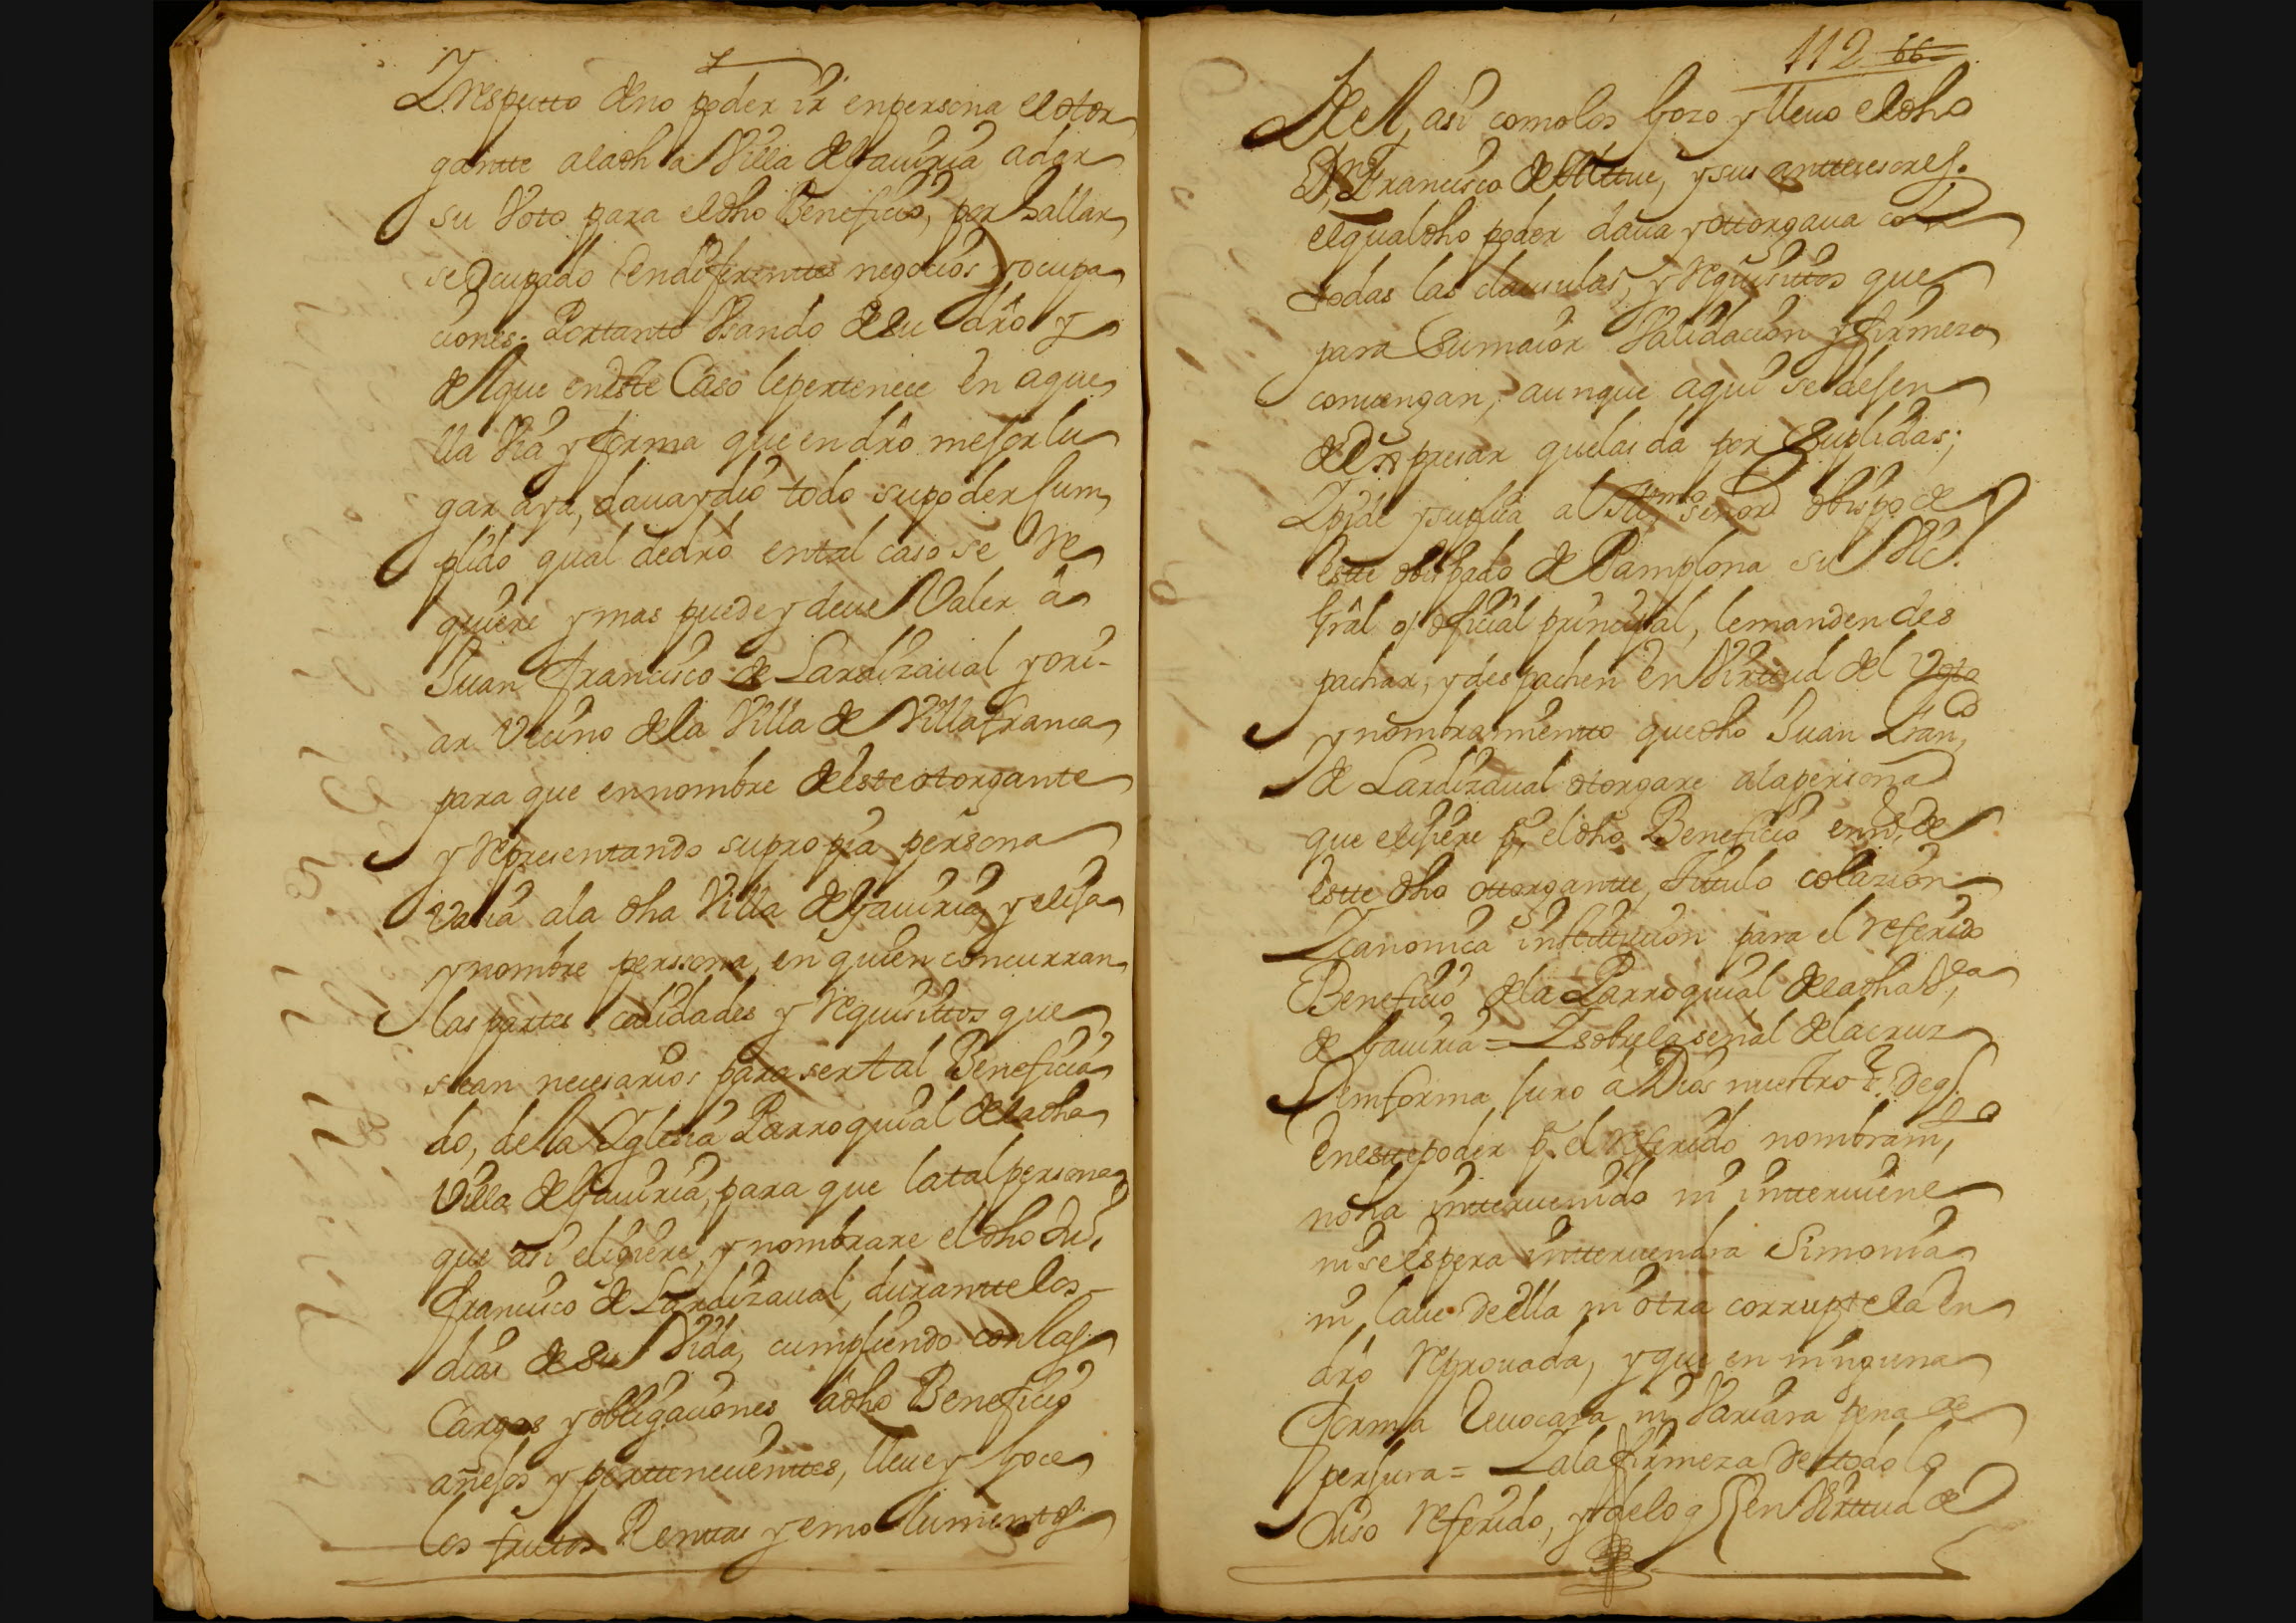 Y respecto de no poder ir en persona el otor
gante a la dha Villa de Gauiria a dar
su Voto para el dho Beneficio, por hallar
se ocupado en diferentes negocios y ocupa
ciones. Por tanto Usando de su dro y
del que en este Caso le pertenece en aque
lla Via y forma que en dro mejor lu
gar aya, daua y dio todo su poder cum
plido qual de dro en tal caso se re
quiere y mas puede y deue Valer â
Juan Francisco de Lardizaual y ori-
ar Vecino de la Villa de Villafranca
para que en nombre de este otorgante
y representando su propia persona
Vaia a la dha Villa de Gauiria, y elija
y nombre perssona, en quien concurran
las partes calidades y requisitos que
sean necesarios para ser tal Beneficia
do, de lla Iglesia Parroquial de la dha
Villa de Gauiria, para que la tal persona
que asi eligiere, y nombrare el dho Jun.
Francisco de Lardizaual, durante los
dias de su Vida, cumpliendo con las
Cargas y obligaciones â dho Beneficio
añejos y pertenecientes, lleue y goce
los frutos Rentas y emolumentos
112 66
de el, asi como los Gozo y lleuo el dho
Dn. Francisco de y sus antecesores.
el qual dho poder daua y otorgaua con
todas las clausulas, y requisitos que
para su maior Validacion y firmeza
conuengan, aunque aqui se dejen
de expresar que las da por suplidas;
Y pide y suplica al Illmo señor obispo de
este obispado de Pamplona su Vic.
Gral o oficial principal, le manden des
pachar, y despachen en Virtud del Voto
y nombramiento que dho Juan Franco
de Lardizaual otorgare a la persona
que elijiere pa. el dho Beneficio en ne. de
este dho otorgante, titulo colazion
Y canonica institucion para el referido
Beneficio de la Parroquial de la dha Va
de Gauiria = Y sobre la señal de la cruz
en forma juro â Dios nuestro Sr. de q.
en este poder pa. el referido nombramto
no ha interuenido ni interuiene
ni se espera interuendra Simonia
ni laue de ella ni otra corruptela en
dro reprouada, y que en ninguna
forma reuocara ni Variara pena de
perjura = Y a la firmeza de todo lo
suso referido, y de lo q en Virtud de